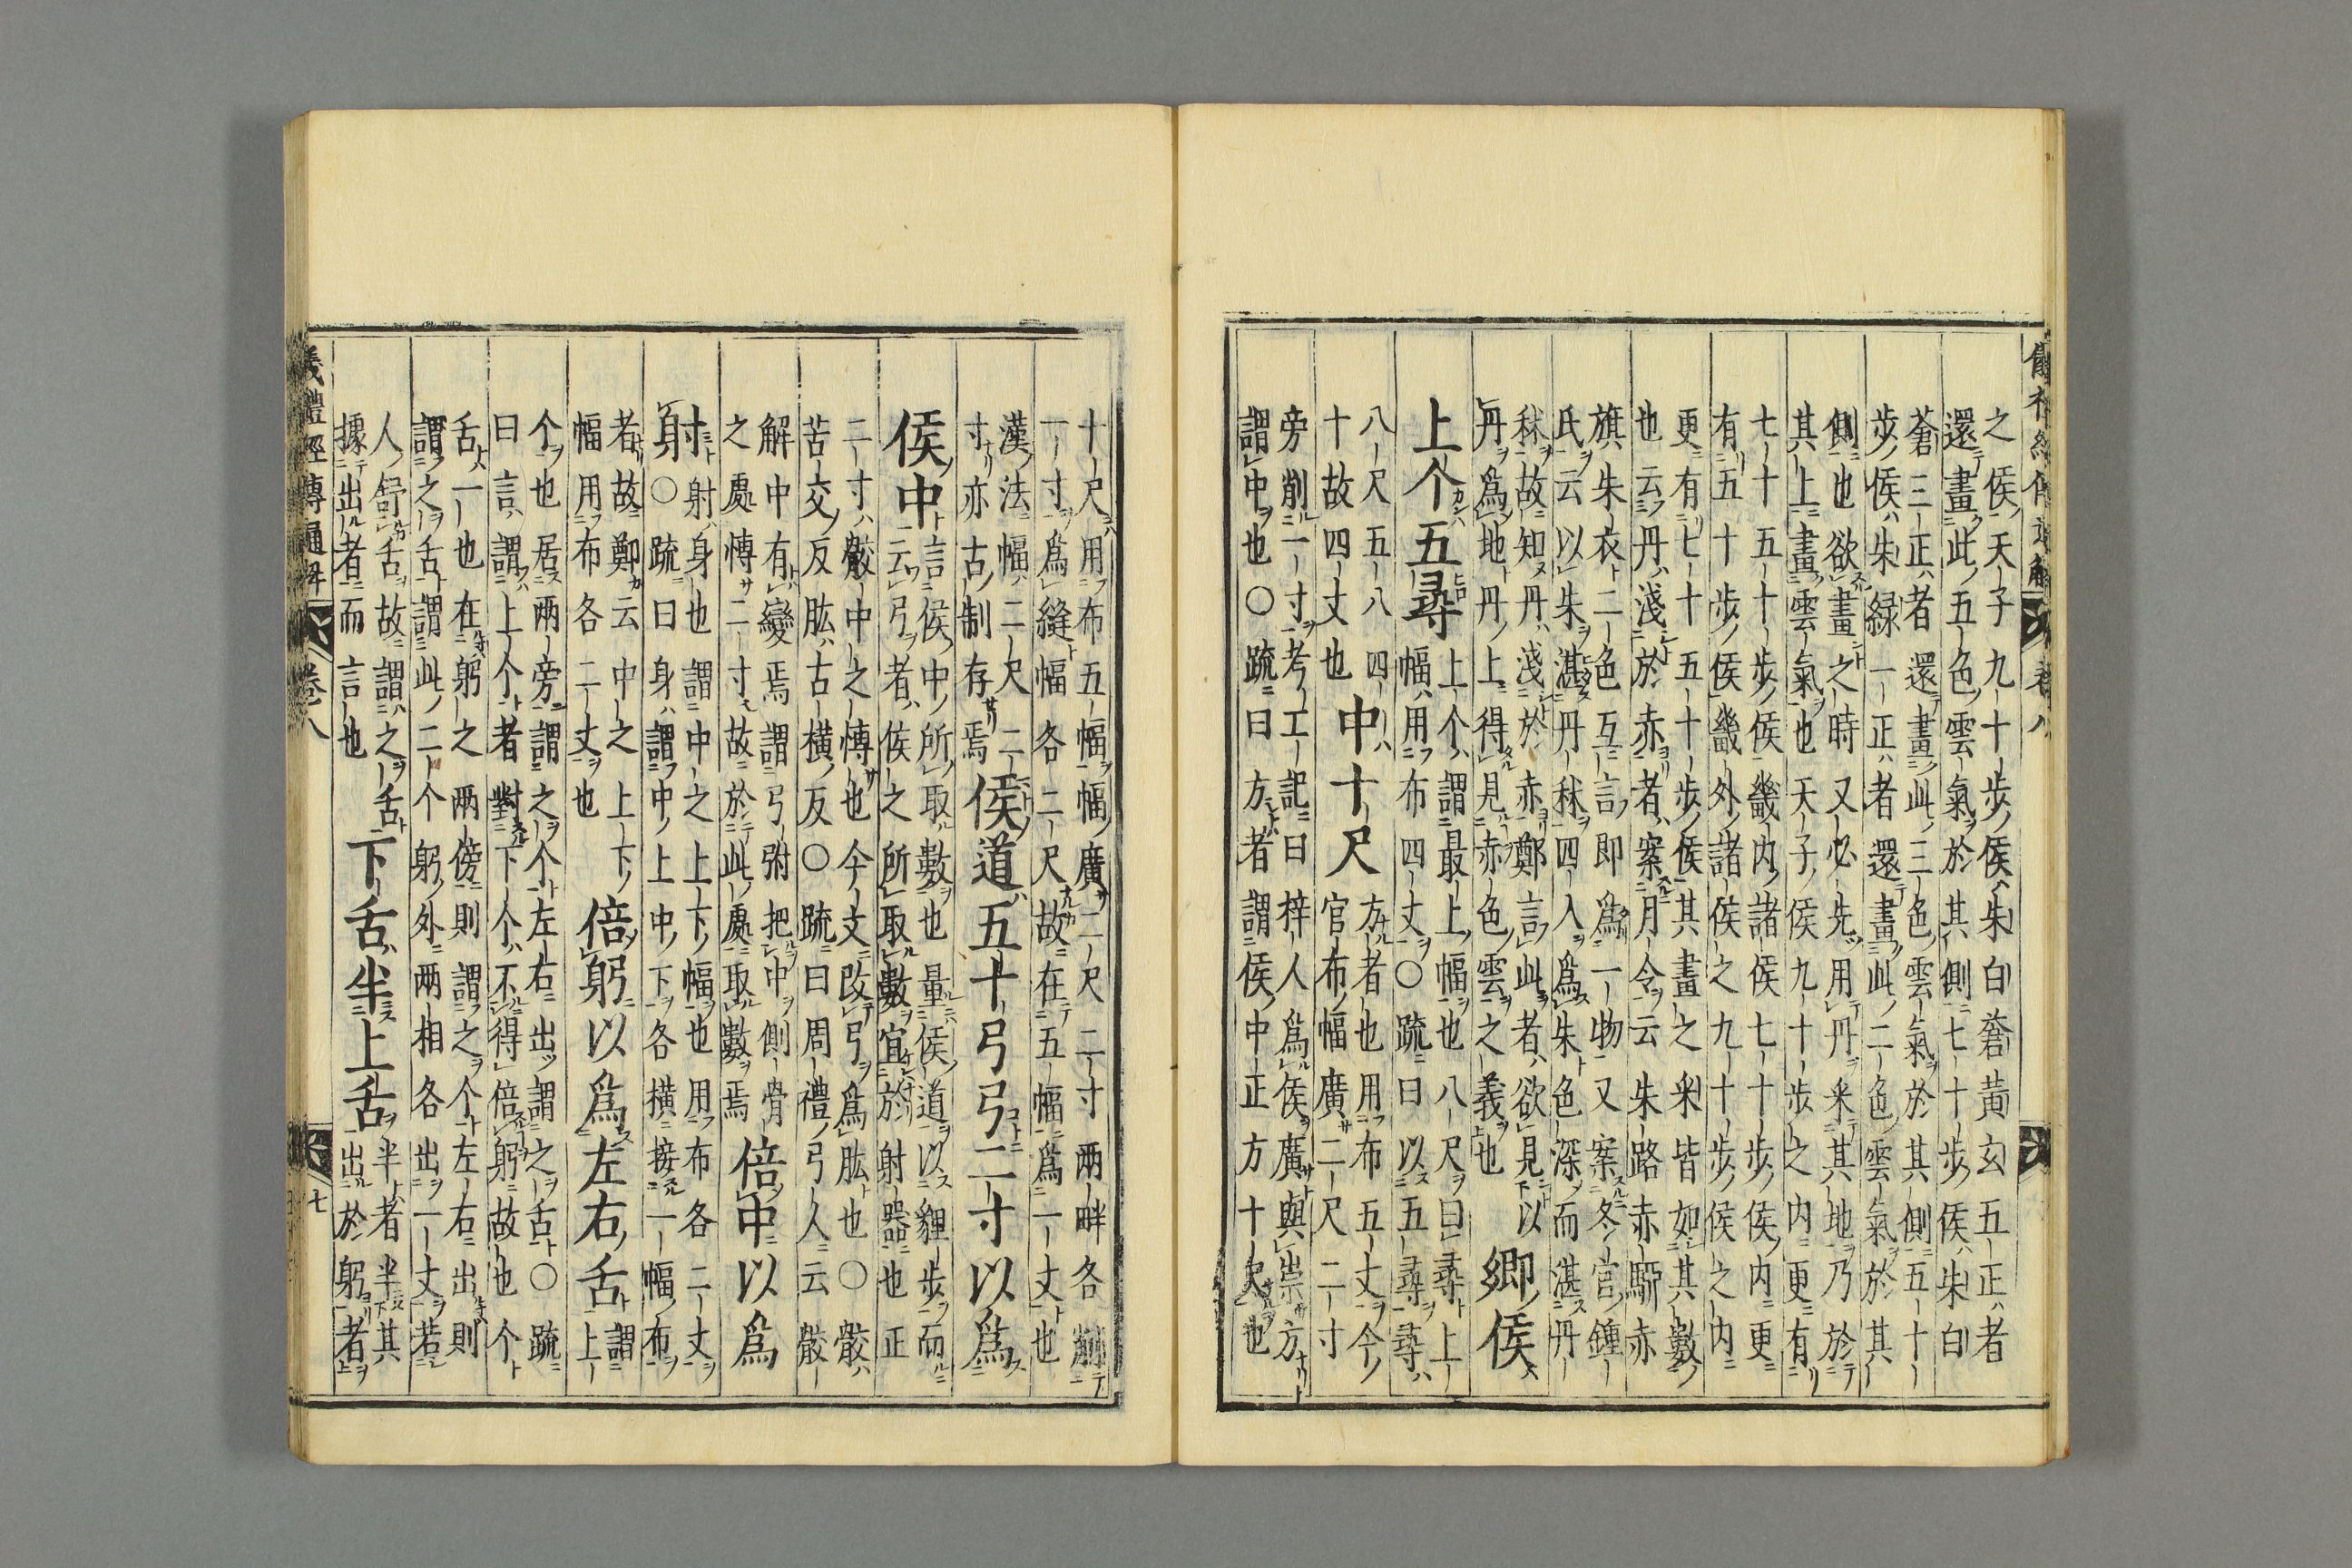 之侯天子九十步侯朱白蒼黃玄五正者
還畫此五色雲氣於其側七十步侯朱白
蒼三正者還畫此三色雲氣於其側五十
步侯朱緑二正者還畫此二色雲氣於其
側也欲畫之時又必先用丹采其地乃於
其上畫雲氣也天子侯九十步之内更有
七十五十步侯畿内諸侯七十步侯内更
有五十步侯畿外諸侯之九十步侯之内
更有七十五十步侯其畫之采皆如其數
也云丹淺於赤者案月令云朱路赤駵赤
旗朱衣二色互言即爲一物又案冬官鍾
氏云以朱湛丹秫四入爲朱色深而湛丹
秫故知丹淺於赤鄭言此者欲見以
丹爲地丹上得見赤色雲之義也
鄉侯
上个五尋
上个謂最上幅也八尺曰尋上
幅用布四丈○疏曰以五尋尋
八尺五八四
十故四丈也
中十尺
方者也用布五丈今
官布幅廣二尺二寸
旁削一寸考工記曰梓人爲侯廣與崇方
謂中也○疏曰方者謂侯中正方十尺也
十尺用布五幅幅廣二尺二寸兩畔各削
一寸爲縫幅各二尺故在五幅爲一丈也
漢法幅二尺二
寸亦古制存焉
侯道五十弓弓二寸以爲
侯中
言侯中所取數也量侯道以貍步而
云弓者侯之所取數宜於射器也正
二寸骹中之博也今文改弓爲肱也○骹
苦交反肱古橫反○疏曰周禮弓人云骹
解中有變焉謂弓弣把中側骨
之處博二寸故於此處取數焉
倍中以爲
射
射身也謂中之上下幅也用布各二丈
○疏曰身謂中上中下各橫接一幅布
者故鄭云中之上下
幅用布各二丈也
倍躬以爲左右舌
謂上
个也居兩旁謂之个左右出謂之舌○疏
曰言謂上个者對下个不得倍躬故也个
舌一也在躬之兩傍則謂之个左右出則
謂之舌謂此二个躬外兩相各出一丈若
人舒舌故謂之舌
據出者而言也
下舌半上舌
半者半其
出於躬者
儀禮經傳通解 卷八 七